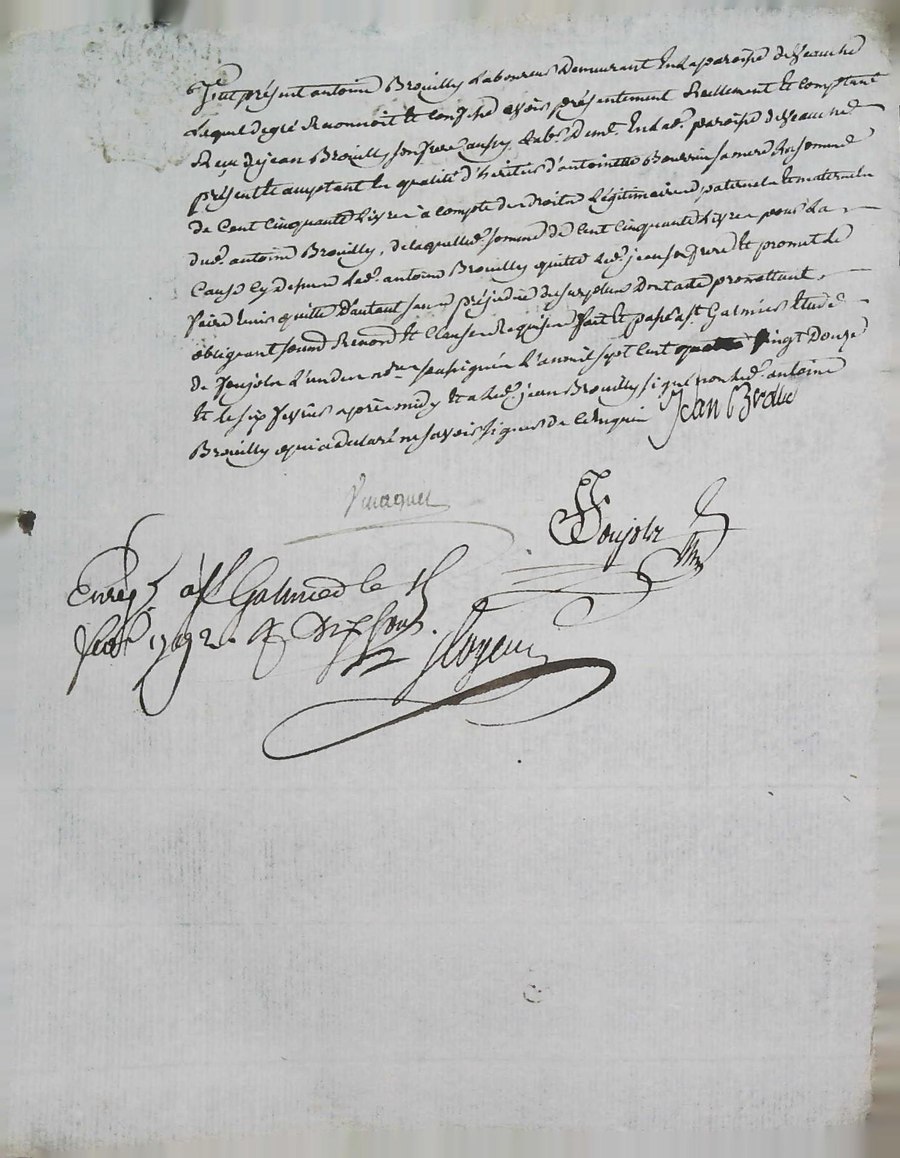 fut présent antoine Brouilly Laboureur Demeurant En La paroisse de
Lequel de gré Reconnoit Et confesse avoir présentement Réellement Et comptant
Reçu de jean Brouilly son frere aussy Lab.r Dem.t En Lad.e paroisse de
présent Et acceptant En qualité d'héritier d'antoinette sa mere La somme
de Cent Cinquante Livres à compte des droits Légitimaires paternels Et maternels
dud.t antoine Brouilly, de laquelle d.e somme de Cent Cinquante Livres pour La
Cause Cy dessus Led.t antoine Brouilly quitte Led.t jean son frere Et promet Le
faire tenir quitte D'autant sans préjudice du surplus Dont acte promettant
obligeant soumis Renonc Et Clauses Requises fait Et passé a S.t Galmier Etude
de Poujolz L'un des no.res soussignés L'an mil sept Cent vingt Douze
Et le six fevrier après midy Et a Led.t jean Brouilly signé non Led.t antoine
Brouilly qui a declaré ne savoir signer de Ce Enquis Jean

Poujolz
Enreg.é à S.t Galmier le
1792. R dix sous.